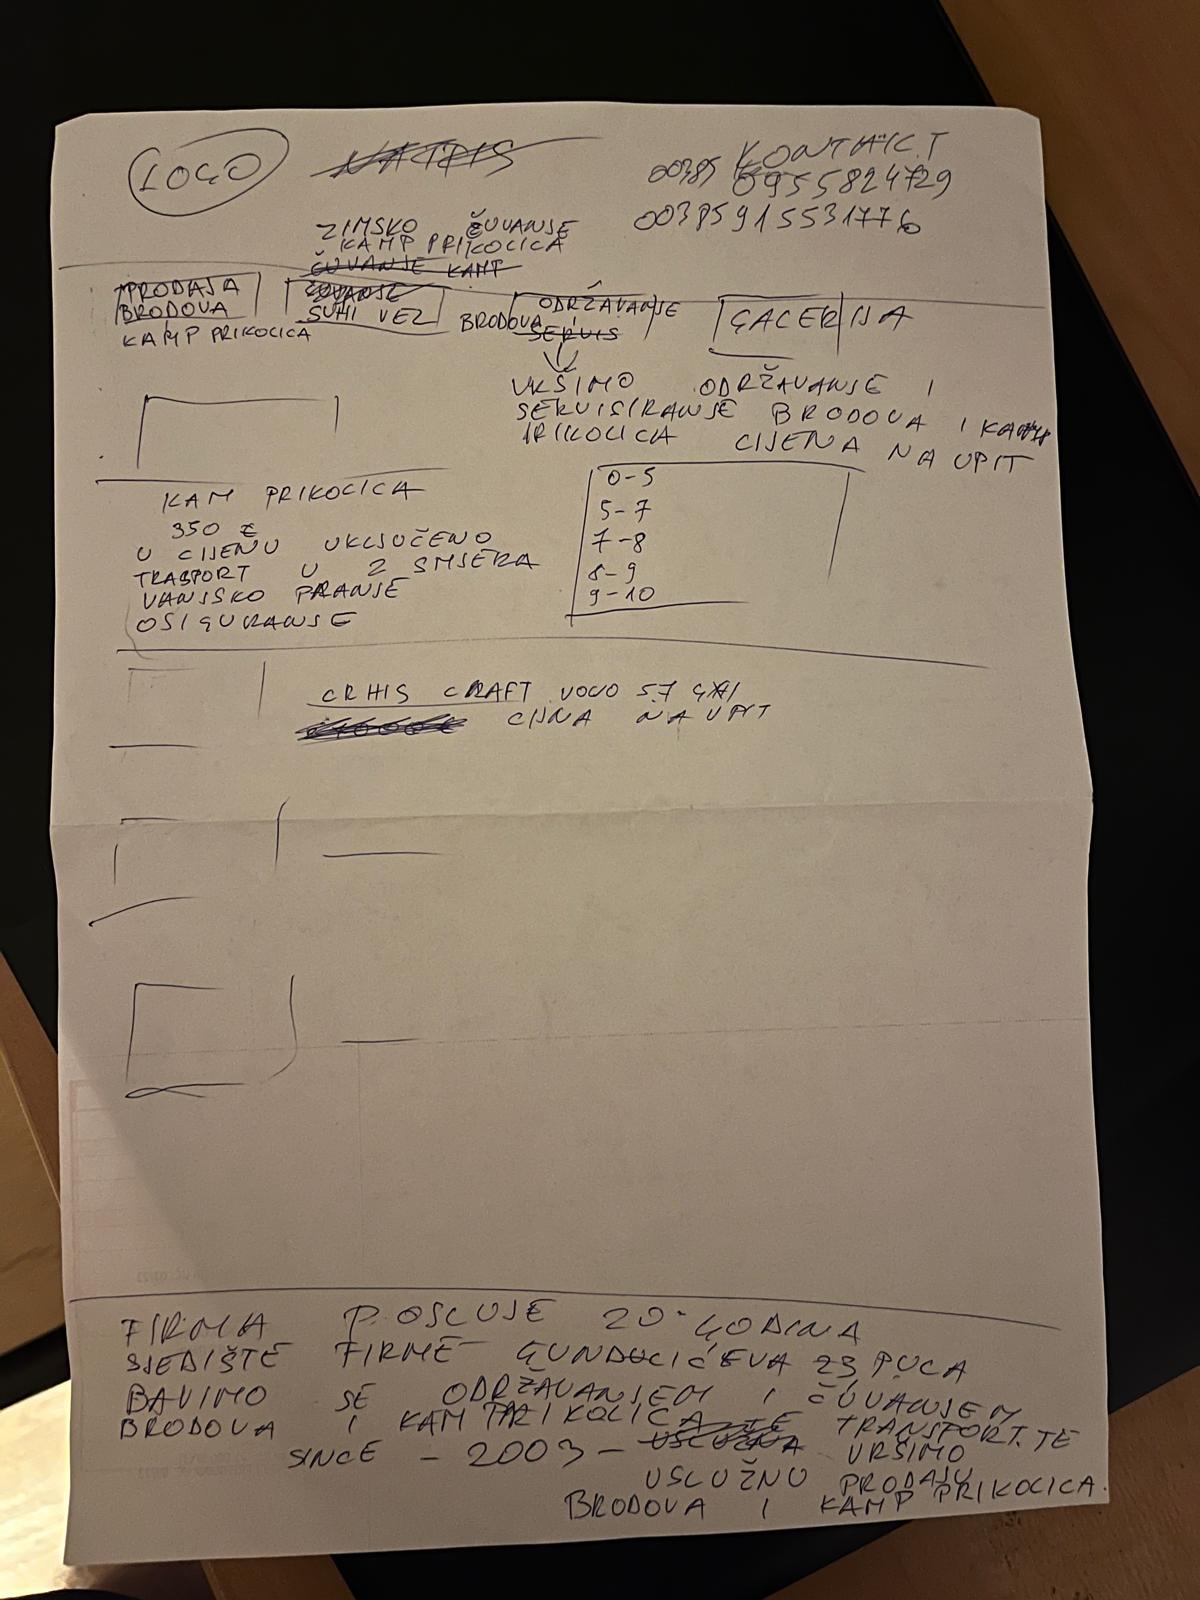 LOGO
NATPIS
KONTAKT
00385 0955824729
00385915531776
ZIMSKO ČUVANJE
KAMP PRIKOLICA
ČUVANJE KAMP
PRODAJA
BRODOVA
KAMP PRIKOLICA
ČUVANJE
SUHI VEZ
ODRŽAVANJE
BRODOVA I
SERVIS
GALERIJA
VRŠIMO ODRŽAVANJE I
SERVISIRANJE BRODOVA I KAMP
PRIKOLICA CIJENA NA UPIT
KAM PRIKOLICA
350 €
U CIJENU UKLJUČENO
TRASPORT U 2 SMJERA
VANJSKO PRANJE
OSIGURANJE
0-5
5-7
7-8
8-9
9-10
CRHIS CRAFT VOVO 5.7 GXI
CIJNA NA UPIT
FIRMA POSLUJE 20 GODINA
SJEDIŠTE FIRME GUNDULIĆEVA 23 PULA
BAVIMO SE ODRŽAVANJEM I ČUVANJEM
BRODOVA I KAM PRIKOLICA TE TRANSPORT. TE
SINCE - 2003 - USLUŽNA VRŠIMO
USLUŽNU PRODAJU
BRODOVA I KAMP PRIKOLICA.